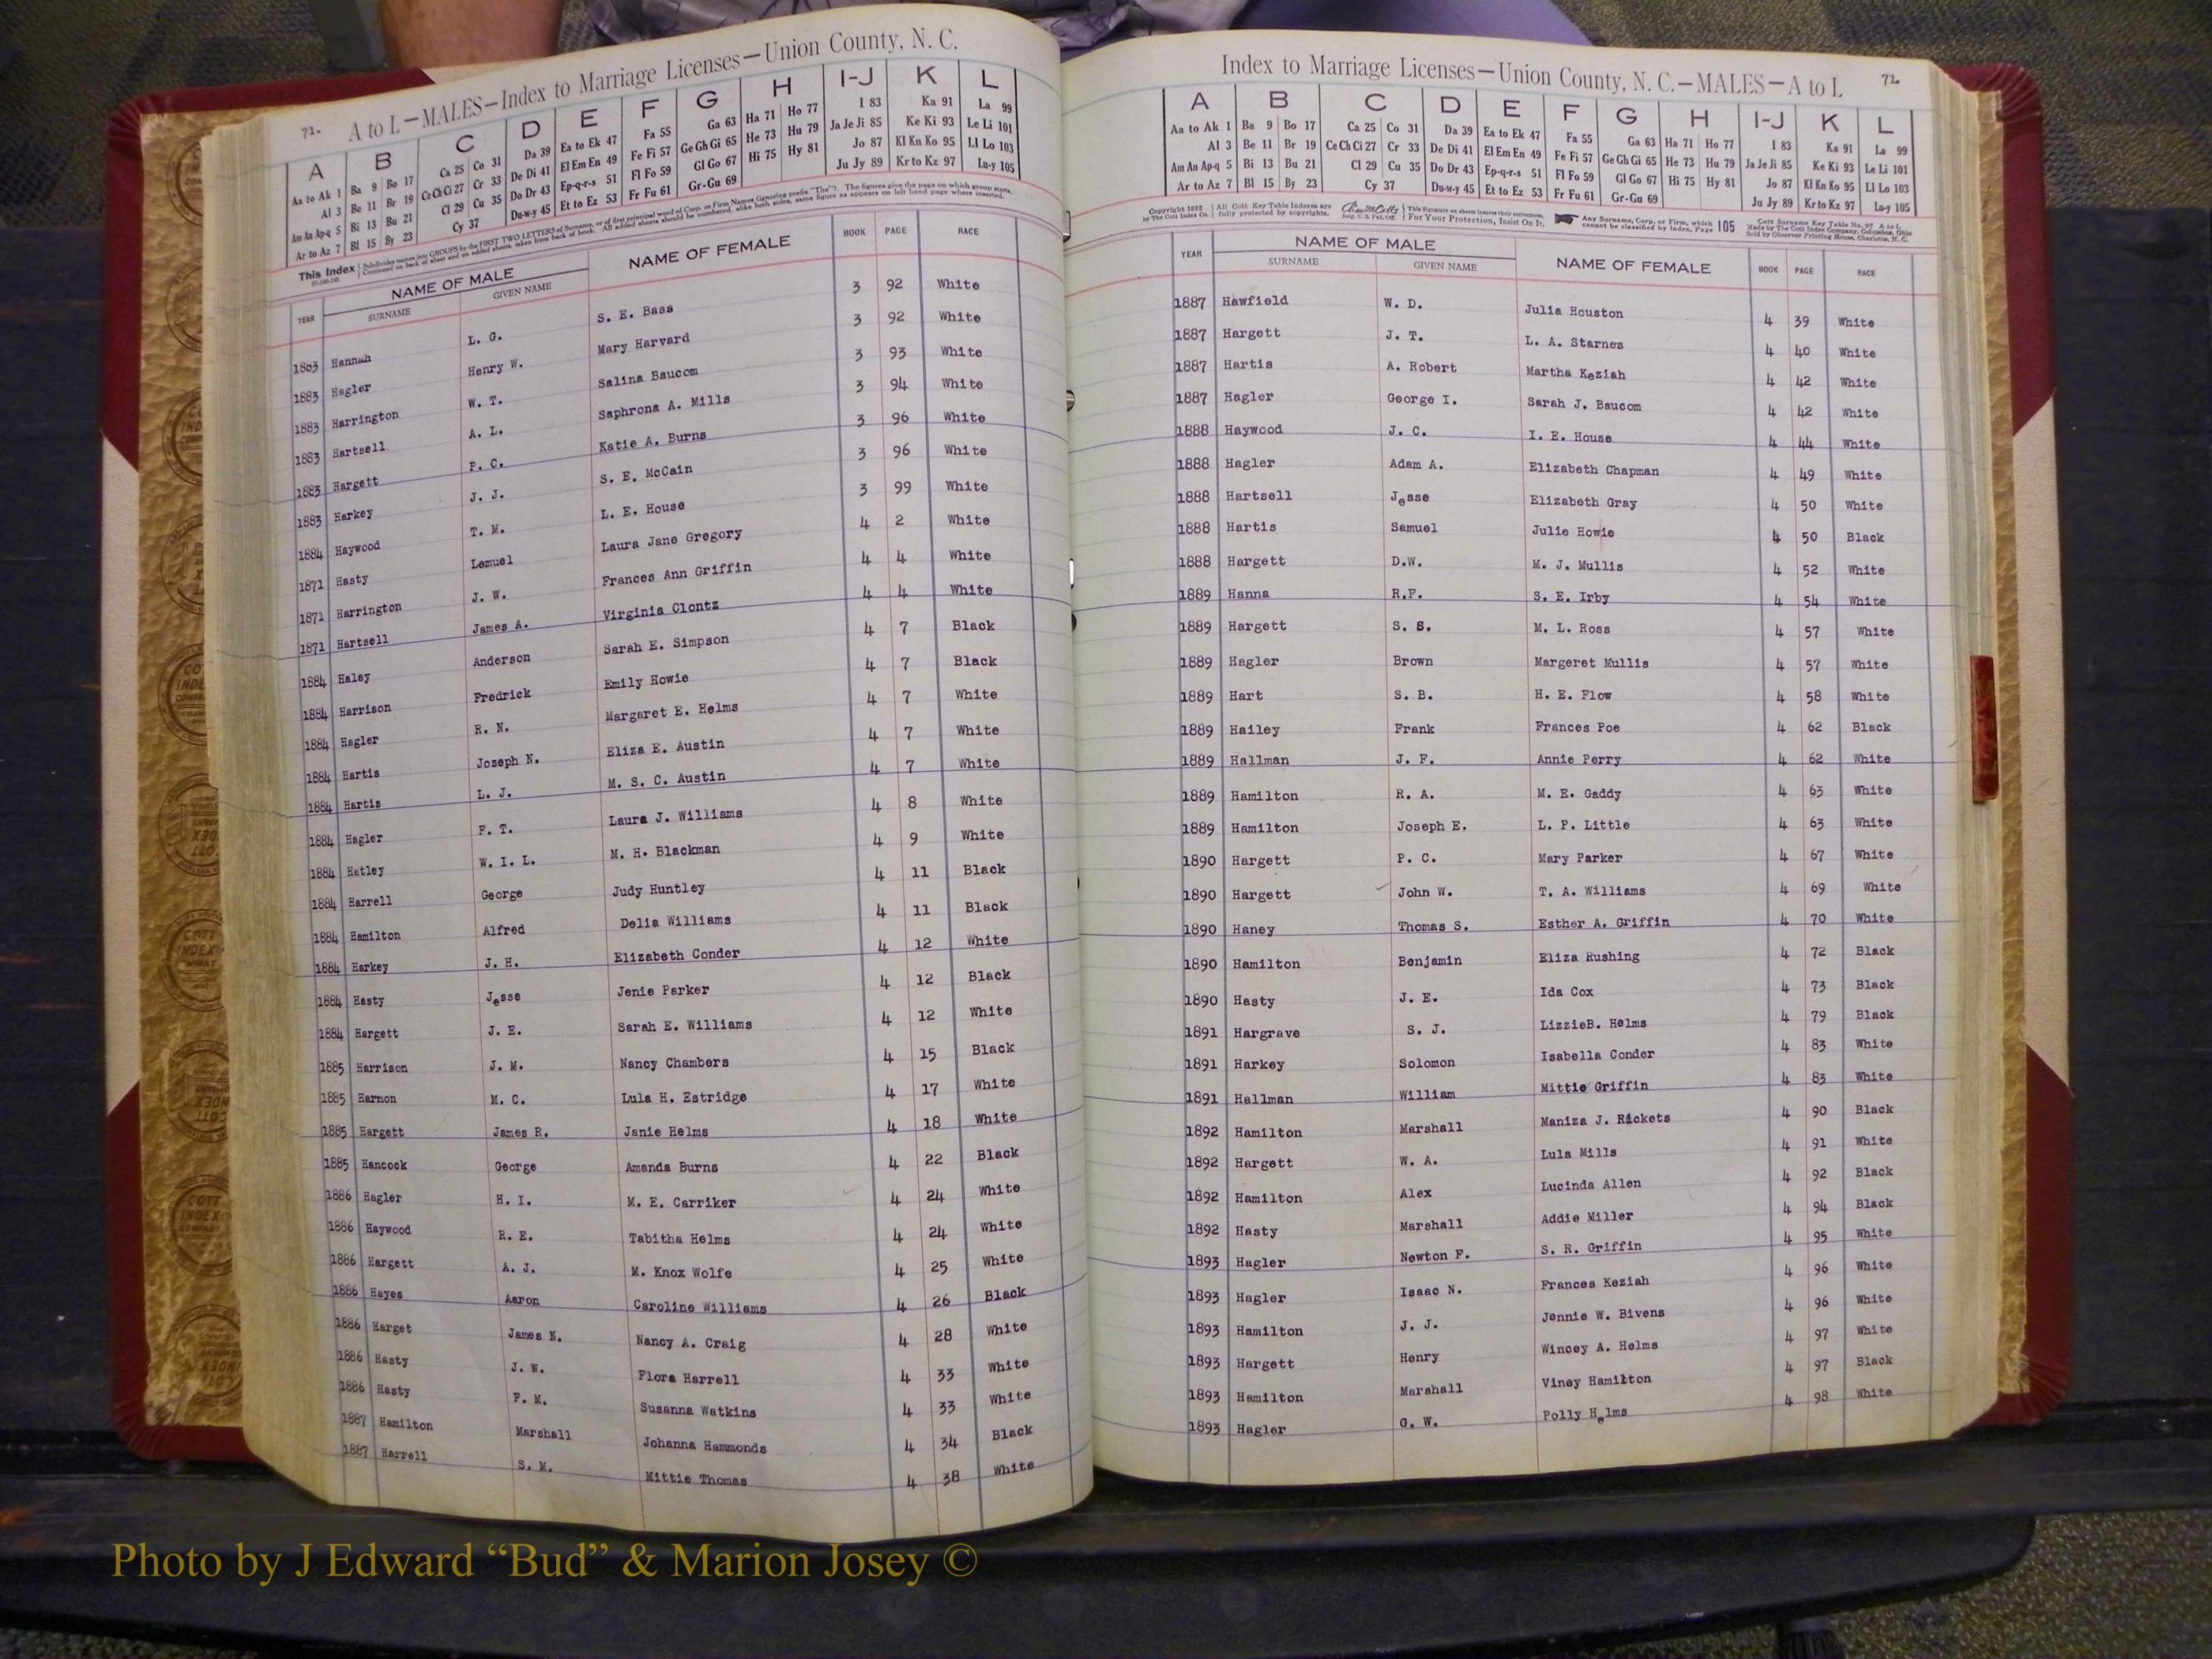 71.
A to L—MALES—Index to Marriage Licenses—Union County, N. C.
A B C D E F G H I-J K L
Aa to Ak 1 Ba 9 Bo 17 Ca 25 Co 31 Da 39 Ea to Ek 47 Fa 55 Ga 63 Ha 71 Ho 77 I 83 Ka 91 La 99
Al 3 Be 11 Br 19 Ce Ch Ci 27 Cr 33 De Di 41 El Em En 49 Fe Fi 57 Ge Gh Gi 65 He 73 Hu 79 Ja Je Ji 85 Ke Ki 93 Le Li 101
Am An Ap-q 5 Bi 13 Bu 21 Cl 29 Cu 35 Do Dr 43 Ep-q-r-s 51 Fl Fo 59 Gl Go 67 Hi 75 Hy 81 Jo 87 Kl Kn Ko 95 Ll Lo 103
Ar to Az 7 Bl 15 By 23 Cy 37 Du-w-y 45 Et to Ez 53 Fr Fu 61 Gr-Gu 69 Ju Jy 89 Kr to Kz 97 Lu-y 105
This Index Subdivides names into GROUPS by the FIRST TWO LETTERS of Surname, or of first principal word of Corp. or Firm Names (ignoring prefix "The"). The figures give the page on which group starts.
Continued on back of sheet and on added sheets, taken from back of book. All added sheets should be numbered, alike both sides, same figure as appears on left hand page where inserted.
YEAR NAME OF MALE NAME OF FEMALE BOOK PAGE RACE
SURNAME GIVEN NAME
1883 Hannah L. G. S. E. Bass 3 92 White
1883 Hagler Henry W. Mary Harvard 3 92 White
1883 Harrington W. T. Salina Baucom 3 93 White
1883 Hartsell A. L. Saphrona A. Mills 3 94 White
1883 Hargett P. C. Katie A. Burns 3 96 White
1883 Harkey J. J. S. E. McCain 3 96 White
1884 Haywood T. M. L. E. House 3 99 White
1871 Hasty Lemuel Laura Jane Gregory 4 2 White
1871 Harrington J. W. Frances Ann Griffin 4 4 White
1871 Hartsell James A. Virginia Clontz 4 4 White
1884 Haley Anderson Sarah E. Simpson 4 7 Black
1884 Harrison Fredrick Emily Howie 4 7 Black
1884 Hagler R. N. Margaret E. Helms 4 7 White
1884 Hartis Joseph N. Eliza E. Austin 4 7 White
1884 Hartis L. J. M. S. C. Austin 4 7 White
1884 Hagler F. T. Laura J. Williams 4 8 White
1884 Hatley W. I. L. M. H. Blackman 4 9 White
1884 Harrell George Judy Huntley 4 11 Black
1884 Hamilton Alfred Delia Williams 4 11 Black
1884 Harkey J. H. Elizabeth Conder 4 12 White
1884 Hasty Jesse Jenie Parker 4 12 Black
1884 Hargett J. E. Sarah E. Williams 4 12 White
1885 Harrison J. M. Nancy Chambers 4 15 Black
1885 Harmon M. C. Lula H. Estridge 4 17 White
1885 Hargett James R. Janie Helms 4 18 White
1885 Hancock George Amanda Burns 4 22 Black
1886 Hagler H. I. M. E. Carriker 4 24 White
1886 Haywood R. E. Tabitha Helms 4 24 White
1886 Hargett A. J. M. Knox Wolfe 4 25 White
1886 Hayes Aaron Caroline Williams 4 26 Black
1886 Harget James N. Nancy A. Craig 4 28 White
1886 Hasty J. W. Flora Harrell 4 33 White
1886 Hasty F. M. Susanna Watkins 4 33 White
1887 Hamilton Marshall Johanna Hammonds 4 34 Black
1887 Harrell S. M. Mittie Thomas 4 38 White
Index to Marriage Licenses—Union County, N. C.—MALES—A to L
71.
A B C D E F G H I-J K L
Aa to Ak 1 Ba 9 Bo 17 Ca 25 Co 31 Da 39 Ea to Ek 47 Fa 55 Ga 63 Ha 71 Ho 77 I 83 Ka 91 La 99
Al 3 Be 11 Br 19 Ce Ch Ci 27 Cr 33 De Di 41 El Em En 49 Fe Fi 57 Ge Gh Gi 65 He 73 Hu 79 Ja Je Ji 85 Ke Ki 93 Le Li 101
Am An Ap-q 5 Bi 13 Bu 21 Cl 29 Cu 35 Do Dr 43 Ep-q-r-s 51 Fl Fo 59 Gl Go 67 Hi 75 Hy 81 Jo 87 Kl Kn Ko 95 Ll Lo 103
Ar to Az 7 Bl 15 By 23 Cy 37 Du-w-y 45 Et to Ez 53 Fr Fu 61 Gr-Gu 69 Ju Jy 89 Kr to Kz 97 Lu-y 105
Copyright All Cott Key Table Indexes are This Signature on sheets insures their correctness. Any Surname, Corp. or Firm, which Cott Surname Key Table No. 97 A to L
by The Cott Index Co. fully protected by copyrights. Reg. U.S. Pat. Off. For Your Protection, Insist On It. cannot be classified by Index, Page 105 Made by The Cott Index Company, Columbus, Ohio
Sold by Observer Printing House, Charlotte, N. C.
YEAR NAME OF MALE NAME OF FEMALE BOOK PAGE RACE
SURNAME GIVEN NAME
1887 Hawfield W. D. Julia Houston 4 39 White
1887 Hargett J. T. L. A. Starnes 4 40 White
1887 Hartis A. Robert Martha Keziah 4 42 White
1887 Hagler George I. Sarah J. Baucom 4 42 White
1888 Haywood J. C. I. E. House 4 44 White
1888 Hagler Adam A. Elizabeth Chapman 4 49 White
1888 Hartsell Jesse Elizabeth Gray 4 50 White
1888 Hartis Samuel Julie Howie 4 50 Black
1888 Hargett D.W. M. J. Mullis 4 52 White
1889 Hanna R.F. S. E. Irby 4 54 White
1889 Hargett S. S. M. L. Ross 4 57 White
1889 Hagler Brown Margaret Mullis 4 57 White
1889 Hart S. B. H. E. Flow 4 58 White
1889 Hailey Frank Frances Poe 4 62 Black
1889 Hallman J. F. Annie Perry 4 62 White
1889 Hamilton R. A. M. E. Gaddy 4 63 White
1889 Hamilton Joseph E. L. P. Little 4 63 White
1890 Hargett P. C. Mary Parker 4 67 White
1890 Hargett John W. T. A. Williams 4 69 White
1890 Haney Thomas S. Esther A. Griffin 4 70 White
1890 Hamilton Benjamin Eliza Rushing 4 72 Black
1890 Hasty J. E. Ida Cox 4 73 Black
1891 Hargrave S. J. LizzieB. Helms 4 79 Black
1891 Harkey Solomon Isabella Conder 4 83 White
1891 Hallman William Mittie Griffin 4 83 White
1892 Hamilton Marshall Maniza J. Rickets 4 90 Black
1892 Hargett W. A. Lula Mills 4 91 White
1892 Hamilton Alex Lucinda Allen 4 92 Black
1892 Hasty Marshall Addie Miller 4 94 Black
1893 Hagler Newton F. S. R. Griffin 4 95 White
1893 Hagler Isaac N. Frances Keziah 4 96 White
1893 Hamilton J. J. Jennie W. Bivens 4 96 White
1893 Hargett Henry Wincey A. Helms 4 97 White
1893 Hamilton Marshall Viney Hamilton 4 97 Black
1893 Hagler G. W. Polly Helms 4 98 White
Photo by J Edward “Bud” & Marion Josey ©